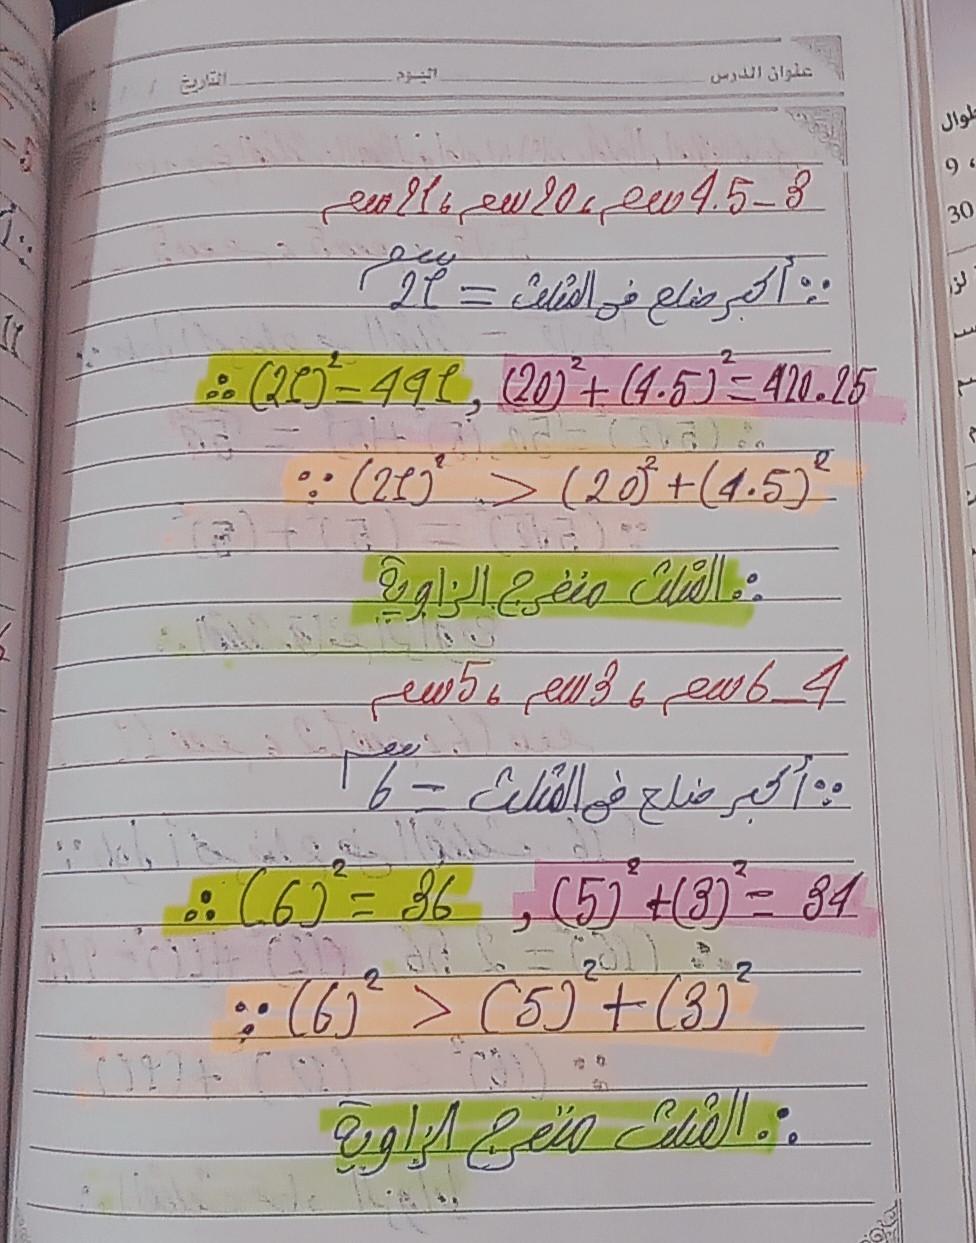 عنوان الدرس اليوم التاريخ
3 - 4.5 سم ، 20 سم ، 21 سم
∵ أكبر ضلع في المثلث = 21 سم
∴ (21)² = 441 , (20)² + (4.5)² = 420.25
∵ (21)² > (20)² + (4.5)²
∴ المثلث منفرج الزاوية
4 - 6 سم ، 3 سم ، 5 سم
∵ أكبر ضلع في المثلث = 6 سم
∴ (6)² = 36 , (5)² + (3)² = 34
∵ (6)² > (5)² + (3)²
∴ المثلث منفرج الزاوية
طوال
9 ،
30